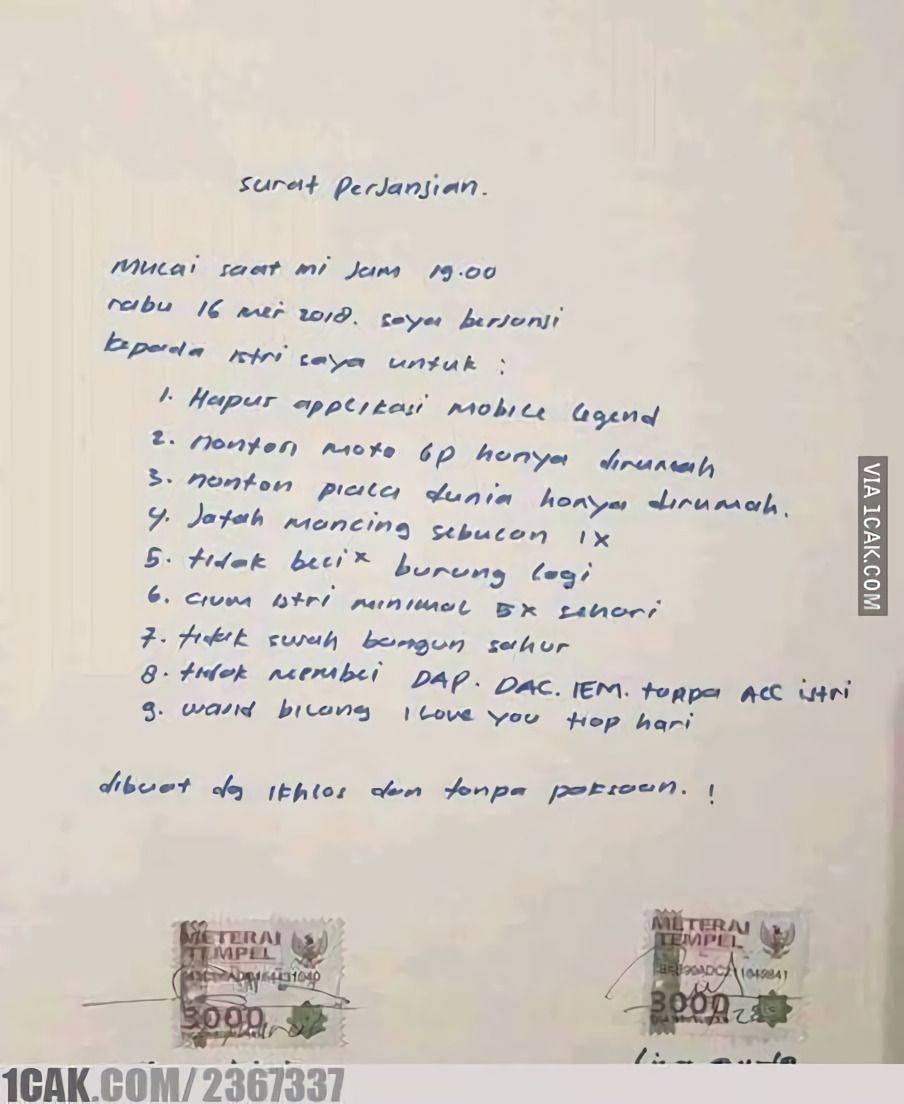 surat perjanjian.
Mulai saat ini Jam 19.00
rabu 16 mei 2018. saya berjanji
kepada istri saya untuk :
1. Hapus applikasi mobile legend
2. nonton moto Gp hanya dirumah
3. nonton piala dunia hanya dirumah.
4. Jatah mancing sebulan 1X
5. tidak beli x burung lagi
6. cium istri minimal 5x sehari
7. tidak susah bangun sahur
8. tidak membei DAP. DAC. IEM. tanpa ACC istri
9. wajib bilang I Love You tiap hari
dibuat dg ikhlas dan tanpa paksaan. !
METERAI
TEMPEL
3000
METERAI
TEMPEL
3000
VIA 1CAK.COM
1CAK.COM/2367337